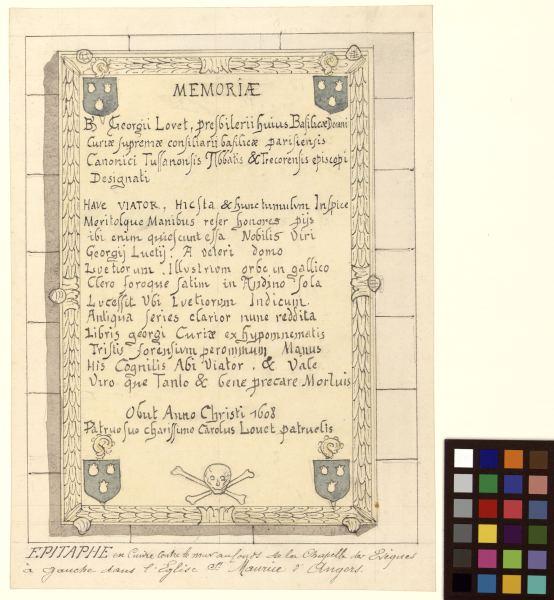 MEMORIÆ
B Georgii Lovet, presbiterii huius Basilicæ Decani
Curiæ supremæ consiliarii basilicæ parisiensis
Canonici Tussanonsis Abbatis & Trecorensis episcopi
Designati
HAVE VIATOR, HICSTA & hunc tumulum Inspice
Meritosque Manibus refer honores pijs
ibi enim quiescunt essa Nobilis Viri
Georgij Luetij. A veteri domo
Luetiorum. Illustrium orbe in gallico
Clero foroque satim in Andino Sola
Lucessit Ubi Luetiorum Indicum.
Antiqua series clarior nunc reddita
Libris georgi Curiæ ex hypomnematis
Tristis forensium perommum Manus
His Cognitis Abi Viator, & Vale
Viro que Tanto & bene precare Mortuis
Obut Anno Christi 1608
Patruo suo charissimo Carolus Louet patruelis
EPITAPHE en Cuivre contre le mur au fonds de la Chapelle des Evêques
à gauche dans l'Eglise St Maurice d'Angers.